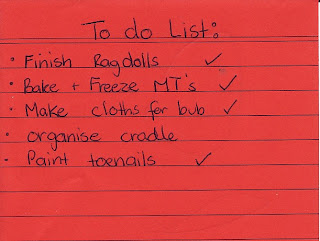 To do List:
• Finish Ragdolls ✓
• Bake + Freeze MT's ✓
• Make cloths for bub ✓
• organise cradle
• Paint toenails ✓